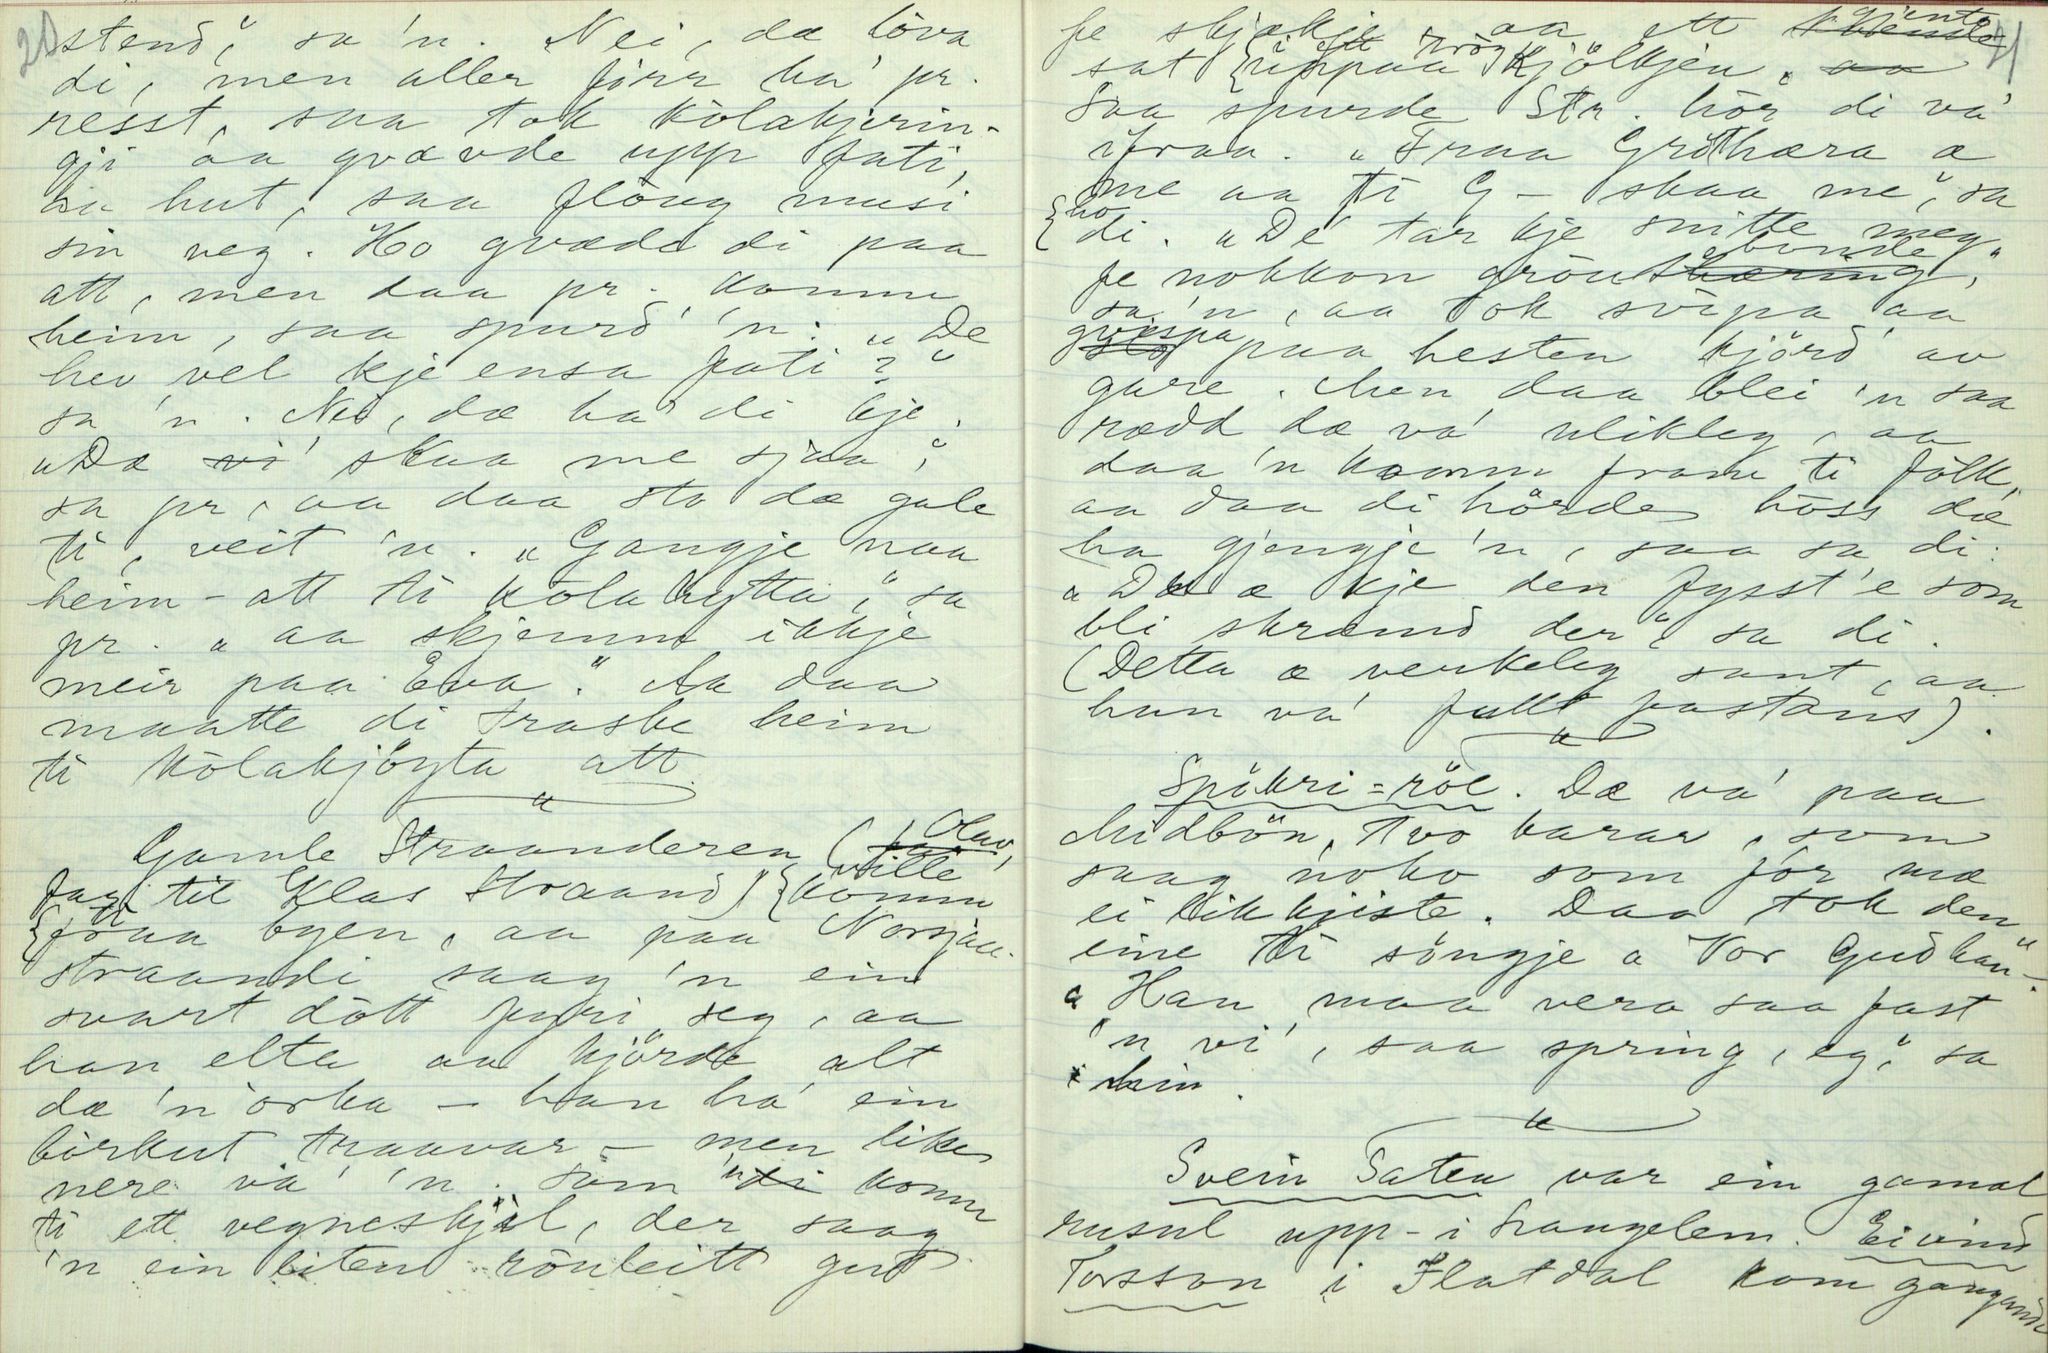 20
stend", sa 'n. Nei, dæ lòva
di, men aller fòrr ha' pr.
resst, saa tok kòlakjerin-
gji aa gvævde upp fati,
aa hut, saa flòug musi
sin veg. Ho gvævde di paa
att, men daa pr. komm
heim, saa spurd' 'n. "De
hev vel kje ensa fati?"
sa 'n. Nei, dæ ha' di kje.
"Dæ vi' skaa me sjaa",
sa pr, aa daa sto dæ gale
ti, veit 'n. "Gangje naa
heim-att ti kòlahytta", sa
pr. "aa skjemm ikkje
meir paa Eva." Aa daa
maatte di traske heim
ti kòlakjòyta att.
Gamle Straanderen (Olav,
far til Klas Straand) ville komm
ti fraa byen, aa paa Norsjaa-
straandi saag 'n ein
svart dòtt fyri seg, aa
han elta aa kjòrde alt
dæ 'n orka – han ha' ein
bòrkut traavar – men like
nere va' 'n. Som 'n di komm
ti ett vegneskjil, der saag
'n ein liten rònleitt gut
41
fe skjækje, aa ett kvende gjente
sat i ett tròg uppaa kjòlkjen. aa
Saa spurde Str. hòr di va'
ifraa. "Fraa Gròthæra æ
me aa ti G – skaa me", sa
ho di. "De tar kje snitte meg
fe nokkon gròuthæring bonde",
sa 'n, aa tok svipa aa
slo gvespa paa hesten kjòrd' av
gare. Men daa blei 'n saa
rædd dæ va' ulikleg, aa
daa 'n komm fram ti fòlk,
aa daa di hòrde hòss dæ
ha gjengje 'n, saa sa di.
"Du æ kje den fysst'e som
bli skræmd der", sa di.
(Detta æ verkeleg sant, aa
han va' fullt fastans).
Spòkri=ròl. Dæ va' paa
Midbòn, tvo karar, som
saag noko som fòr mæ
ei likkjiste. Daa tok den
eine ti sòngje a "Vor Gud han-".
"Han maa vera saa fast
'n vi', saa spring, eg", sa
hin.
Svein Taten var ein gamal
rusul upp-i Langelem. Eivind
Torsson i Flatdal kom gangande